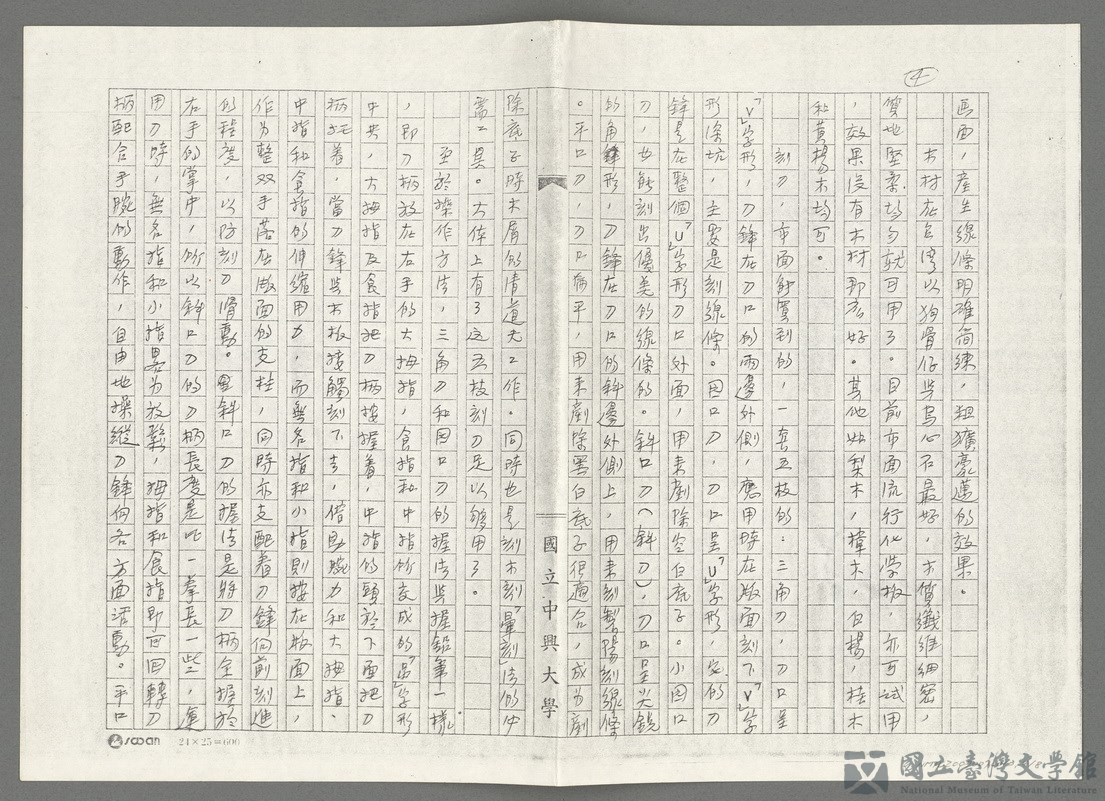 4
畫面，產生線條明確簡練，粗獷豪邁的效果。
木材在台灣以狗骨仔與烏心石最好，木質纖維細密，
質地堅柔均勻就可用了。目前市面流行化學板，亦可試用
，效果沒有木材那麼好。其他如梨木，樟木，白楊，桂木
和黃楊木均可。
刻刀，市面能買到的，一套五枝的：三角刀，刀口呈
「V」字形，刀鋒在刀口的兩邊外側，應用時在版面刻下「V」字
形深坑，主要是刻線條。圓口刀，刀口呈「U」字形，它的刀
鋒是在整個「U」字形刀口外面，用來剷除空白底子。小圓口
刀，也能刻出優美的線條的。斜口刀（斜刀），刀口呈尖銳
的角形，刀鋒在刀口的斜邊外側上，用來刻製陽刻線條
。平口刀，刀口扁平，用來剷除黑白底子很適合，成為剷
除底子時木屑的清道夫工作。同時也是刻木刻「暈刻」法的必
需工具。大体上有了這五枝刻刀足以夠用了。
至於操作方法，三角刀和圓口刀的握法與握鉛筆一樣
，即刀柄放在右手的大拇指，食指和中指所交成的「品」字形
中央，大拇指及食指把刀柄按握着，中指的頭於下面把刀
柄托着，當刀鋒與木板接觸刻下去，借助腕力和大拇指、
中指和食指的伸縮用力，而無名指和小指則按在版面上，
作為整双手落在版面的支柱，同時亦支配着刀鋒向前刻進
的程度，以防刻刀滑動。斜口刀的握法是將刀柄全握於
右手的掌中，所以斜口刀的刀柄長度是比一羣長一些，運
用刀時，無名指和小指畧為放鬆，拇指和食指即可回轉刀
柄配合手腕的動作，自由地操縱刀鋒向各方面活動。平口
國立中興大學
24×25=600
國立臺灣文學館
National Museum of Taiwan Literature